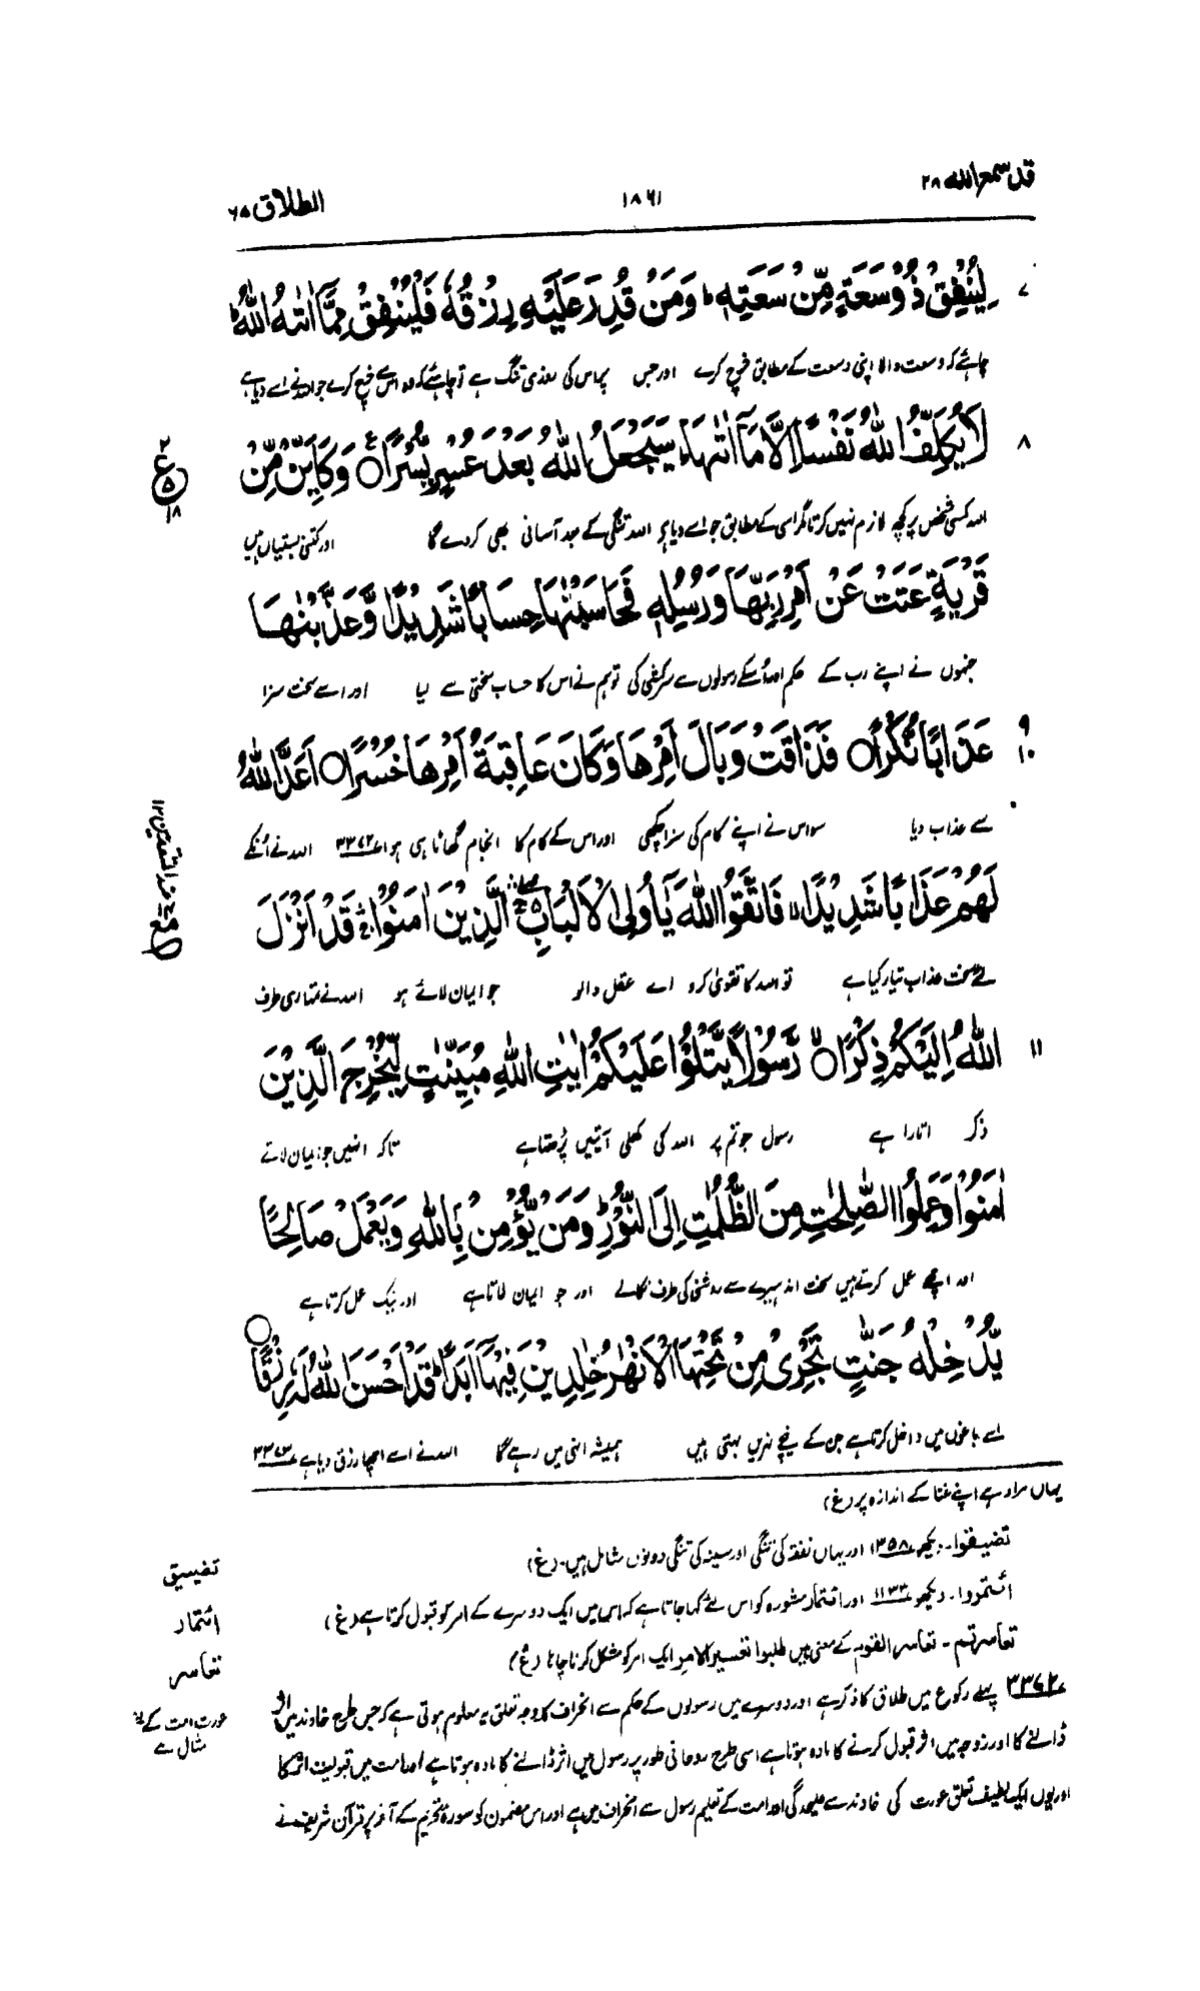 قد سمع الله ۲۸
۱۸۶۱
الطلاق ۶۵
۷ لِيُنْفِقْ ذُوْ سَعَةٍ مِّنْ سَعَتِهٖ ؕ وَمَنْ قُدِرَ عَلَيْهِ رِزْقُهٗ فَلْيُنْفِقْ مِمَّاۤ اٰتٰىهُ اللّٰهُ ؕ
چاہئے کہ وسعت والا اپنی وسعت کے مطابق خرچ کرے اور جس پر اس کی روزی تنگ ہے تو چاہئے کہ وہ اس سے خرچ کرے جو اللہ نے اسے دیا ہے
۸ لَا يُكَلِّفُ اللّٰهُ نَفْسًا اِلَّا مَاۤ اٰتٰىهَا ؕ سَيَجْعَلُ اللّٰهُ بَعْدَ عُسْرٍ يُّسْرًا ○ وَكَاَيِّنْ مِّنْ
۲ ع ۵ ۱۸
اللہ کسی شخص پر کچھ لازم نہیں کرتا مگر اسی کے مطابق جو اسے دیا ہو اللہ تنگی کے بعد آسانی بھی کر دے گا اور کتنی بستیاں ہیں
قَرْيَةٍ عَتَتْ عَنْ اَمْرِ رَبِّهَا وَرُسُلِهٖ فَحَاسَبْنٰهَا حِسَابًا شَدِيْدًا وَّعَذَّبْنٰهَا
جنہوں نے اپنے رب کے حکم اور اُسکے رسولوں سے سرکشی کی تو ہم نے اس کا حساب سختی سے لیا اور اسے سخت سزا
۹ ۱۰ عَذَابًا نُّكْرًا ○ فَذَاقَتْ وَبَالَ اَمْرِهَا وَكَانَ عَاقِبَةُ اَمْرِهَا خُسْرًا ○ اَعَدَّ اللّٰهُ
سے عذاب دیا سو اس نے اپنے کام کی سزا چکھی اور اس کے کام کا انجام گھاٹا ہی ہوا ۳۳۷۲ اللہ نے اُنکے
لَهُمْ عَذَابًا شَدِيْدًا ۙ فَاتَّقُوا اللّٰهَ يٰۤاُولِى الْاَلْبَابِ الَّذِيْنَ اٰمَنُوْا قَدْ اَنْزَلَ
لئے سخت عذاب تیار کیا ہے تو اللہ کا تقویٰ کرو اے عقل والو جو ایمان لائے ہو اللہ نے تمہاری طرف
۱۱ اللّٰهُ اِلَيْكُمْ ذِكْرًا ○ رَّسُوْلًا يَّتْلُوْا عَلَيْكُمْ اٰيٰتِ اللّٰهِ مُبَيِّنٰتٍ لِّيُخْرِجَ الَّذِيْنَ
ذکر اتارا ہے رسول جو تم پر اللہ کی کھلی آیتیں پڑھتا ہے تاکہ انہیں جو ایمان لاتے
اٰمَنُوْا وَعَمِلُوا الصّٰلِحٰتِ مِنَ الظُّلُمٰتِ اِلَى النُّوْرِ ؕ وَمَنْ يُّؤْمِنْ بِاللّٰهِ وَيَعْمَلْ صَالِحًا
اور اچھے عمل کرتے ہیں سخت اندھیرے سے روشنی کی طرف نکالے اور جو ایمان لاتا ہے اور نیک عمل کرتا ہے
يُّدْخِلْهُ جَنّٰتٍ تَجْرِىْ مِنْ تَحْتِهَا الْاَنْهٰرُ خٰلِدِيْنَ فِيْهَاۤ اَبَدًا ؕ قَدْ اَحْسَنَ اللّٰهُ لَهٗ رِزْقًا ○
اسے باغوں میں داخل کرتا ہے جن کے نیچے نہریں بہتی ہیں ہمیشہ انہی میں رہے گا اللہ نے اسے اچھا رزق دیا ہے ۳۳۷۳
یہاں مراد ہے اپنے غنا کے اندازہ پر (غ)
تضییق
تضیقوا۔ دیکھو ۱۳۵۸ اور یہاں نفقہ کی تنگی اور سینہ کی تنگی دونوں شامل ہیں۔ (غ)
ائتمار
ائتمروا۔ دیکھو ۱۱۳۳ اور ائتمار مشورہ کو اس لئے کہا جاتا ہے کہ اس میں ایک دوسرے کے امر کو قبول کرتا ہے (غ)
تعاسر
تعاسرتم۔ تعاسر القوم کے معنی ہیں طلبوا تعسیر الامر ایک امر کو مشکل کرنا چاہا (غ)
عورت امت کے لئے مثال ہے
۳۳۷۲ پہلے رکوع میں طلاق کا ذکر ہے اور دوسرے میں رسولوں کے حکم سے انحراف کا وجہ تعلق یہ معلوم ہوتی ہے کہ جس طرح خاوند میں اثر
ڈالنے کا اور زوجہ میں اثر قبول کرنے کا مادہ ہوتا ہے اسی طرح روحانی طور پر رسول میں اثر ڈالنے کا مادہ ہوتا ہے اور امت میں قبولیت اثر کا
اور یوں ایک لطیف تعلق عورت کی خاوند سے علیحدگی اور امت کے تعلیم رسول سے انحراف میں ہے اور اس مضمون کو سورۃ تحریم کے آخر پر قرآن شریف نے